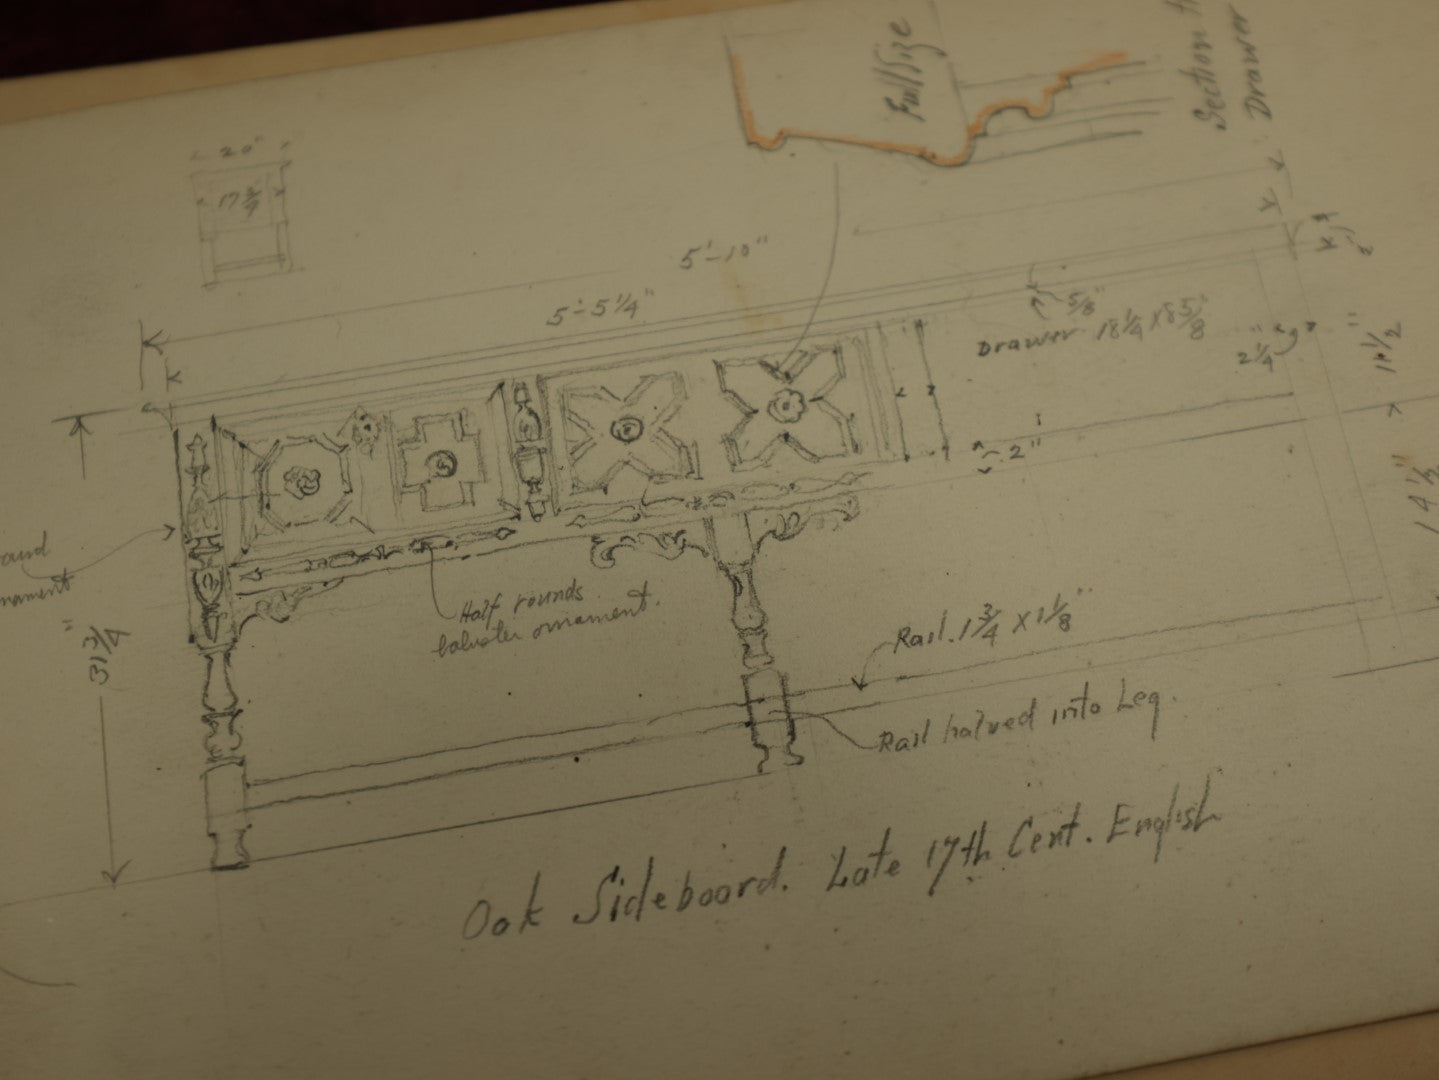 Full Size
Section
Drawer
20"
5'-10"
5'-5 1/4"
5/8"
Drawer 18 1/4 x 8 5/8"
2 1/4"
2"
31 3/4"
Half rounds
baluster ornament.
Rail. 1 3/4 x 1 1/8"
Rail halved into Leg.
14 1/2"
Oak Sideboard. Late 17th Cent. English